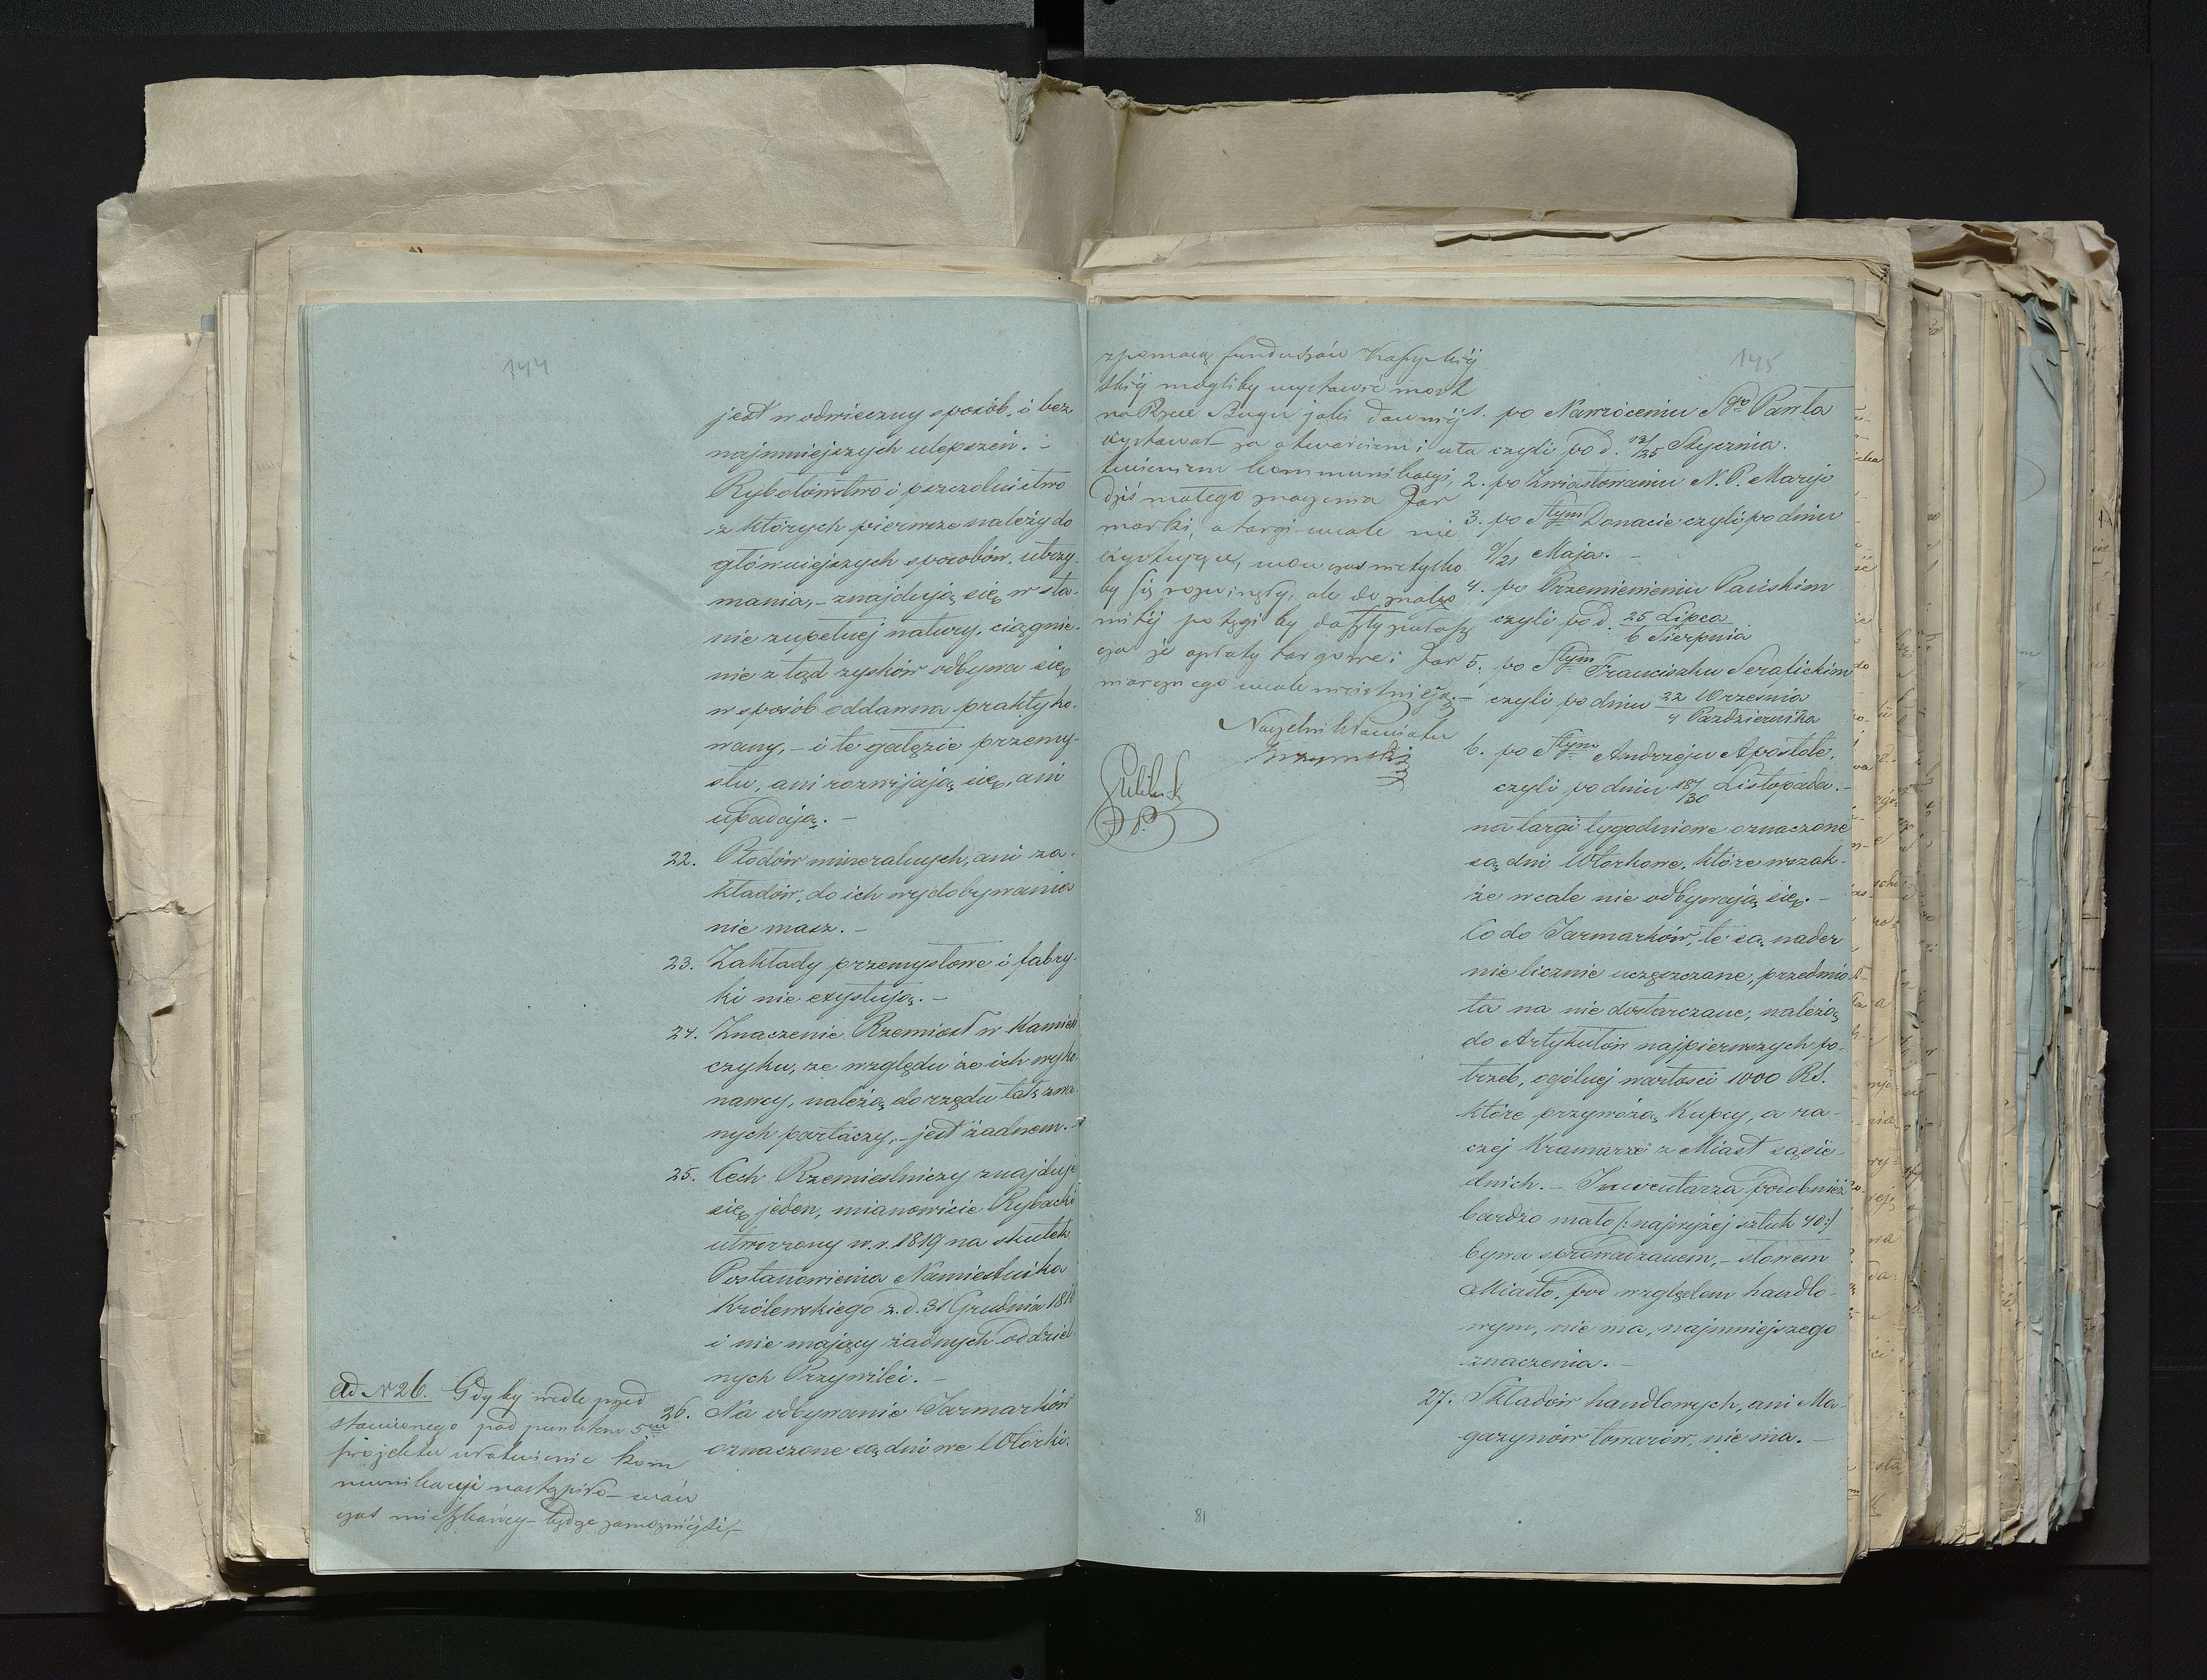 144
jest w odwieczny sposób, i bez
najmniejszych ulepszeń. –
Rybołówstwo i pszczolnictwo
z których pierwsze należy do
główniejszych sposobów utrzy-
mania, – znajdują się w sta-
nie zupełnej natury, ciągnie-
nie z tąd zysków odbywa się
w sposób oddawna praktyko-
wany, – i te gałęzie przemy-
słu, ani rozwijają się, ani
upadają. –
22. Płodów mineralnych, ani za-
kładów, do ich wydobywania
nie masz. –
23. Zakłady przemysłowe i fabry-
ki nie exystują. –
24. Znaczenie Rzemiosł w Kamień
czyku, ze względu że ich wyko-
nawcy, należą do rzędu tak zwa-
nych partaczy, – jest żadnem. –
25. Cech Rzemieślniczy znajduje
się jeden, mianowicie Rybacki
utworzony w r. 1819 na skutek
Postanowienia Namiestnika
Królewskiego z d. 31 Grudnia 1816
i nie mający żadnych oddziel-
nych Przywilei. –
26. Na odbywanie Jarmarków
oznaczone są dni we Wtorki:
ad N 26. Gdyby wedle przed
stawionego pod punktem 5ym
projektu ułatwienie kom
munikacji nastąpiło – wów
czas mieszkańcy – tudzież zamożniejsi, –
145
z pomocą funduszów Kassy
mogliby wystawić most
na Rzece Bugu jaki dawniéj
exystował za otwarciem i uła
twieniem kommunikacyi,
dziś małego znaczenia Jar
marki, a targi wcale nie
exystujące, wówczas nie tylko
by się rozwinęły, ale do znako
mitéj potęgi by doszły
opłaty targowe i Jar
marcznego wcale nie istnieją. –
Naczelnik Powiatu
1. po Nawróceniu Sgo Pawła
czyli po d. 13/25 Stycznia.
2. po Zwiastowaniu N. P. Maryi
3. po Stym Donacie czyli po dniu
9/21 Maja. –
4. po Przemienieniu Pańskim
czyli po d. 25 Lipca
6 Sierpnia
5. po Stym Franciszku Serafickim
czyli po dniu 22 Września
4 Października
6. po Stym Andrzeju Apostole,
czyli po dniu 18/30 Listopada. –
na targi tygodniowe oznaczone
są dni Wtorkowe, które wszak-
że wcale nie odbywają się. –
Co do Jarmarków, te są nader
nie licznie uczęszczane, przedmio
ta na nie dostarczane, należą
do Artykułów najpierwszych po-
trzeb, ogólnej wartości 1000 RS.
które przywożą Kupcy, a ra-
czej Kramarze z Miast sąsie-
dnich. – Inwentarza podobnież
bardzo mało /: najwyżej sztuk 40 :/
bywa sprowadzanem, – słowem
Miasto, pod względem handlo-
wym, nie ma, najmniejszego
znaczenia. –
27. Składów handlowych, ani Ma-
gazynów towarów, nie ma. –
81